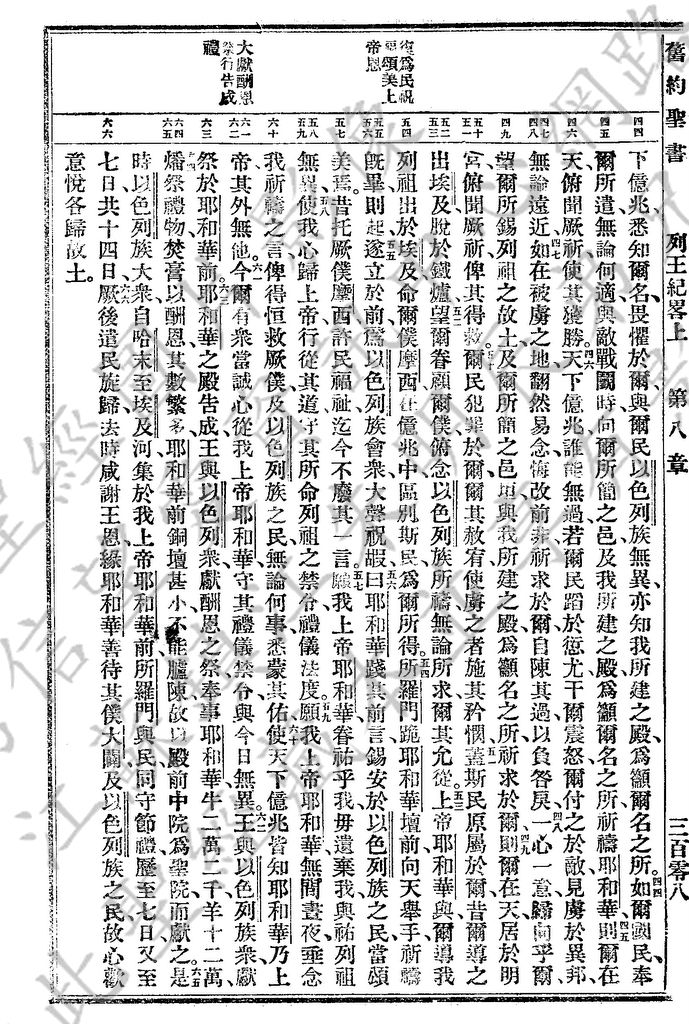 舊約聖書 列王紀畧上 第八章 三百零八
復爲民祝
福頌美上
帝恩
大獻酬恩
祭行告成
禮
四四
四五
四六
四七
四八
四九
五十
五一
五二
五三
五四
五五
五六
五七
五八
五九
六十
六一
六二
六三
六四
六五
六六
下億兆悉知爾名畏懼於爾與爾民以色列族無異亦知我所建之殿爲籲爾名之所如爾國民奉
爾所遣無論何適與敵戰鬬時向爾所簡之邑及我所建之殿爲籲爾名之所祈禱耶和華則爾在
天俯聞厥祈使其獲勝天下億兆誰能無過若爾民蹈於愆尤干爾震怒爾付之於敵見虜於異邦
無論遠近如在被虜之地翻然易念悔改前非祈求於爾自陳其過以負咎戾一心一意歸向乎爾
望爾所錫列祖之故土及爾所簡之邑垣與我所建之殿爲籲名之所祈求於爾則爾在天居於明
宮俯聞厥祈俾其得救爾民犯罪於爾爾其赦宥使虜之者施其矜憫蓋斯民原屬於爾昔爾導之
出埃及脫於鐵爐望爾眷顧爾僕俯念以色列族所禱無論所求爾其允從上帝耶和華與爾導我
列祖出於埃及命爾僕摩西在億兆中區別斯民爲爾所得所羅門跪耶和華壇前向天舉手祈禱
旣畢則起遂立於前爲以色列族會衆大聲祝嘏曰耶和華踐其前言錫安於以色列族之民當頌
美焉昔托厥僕摩西許民福祉迄今不廢其一言願我上帝耶和華眷祐乎我毋遺棄我與祐列祖
無異使我心歸上帝行從其道守其所命列祖之禁令禮儀法度願我上帝耶和華無間晝夜垂念
我祈禱之言俾得恒救厥僕及以色列族之民無論何事悉蒙其佑使天下億兆皆知耶和華乃上
帝其外無他今爾有衆當誠心從我上帝耶和華守其禮儀禁令與今日無異王與以色列族衆獻
祭於耶和華前耶和華之殿告成王與以色列衆獻酬恩之祭奉事耶和華牛二萬二千羊十二萬
燔祭禮物焚膏以酬恩其數繁多耶和華前銅壇甚小不能臚陳故以殿前中院爲聖院而獻之是
時以色列族大衆自哈末至埃及河集於我上帝耶和華前所羅門與民同守節禮歷至七日又至
七日共十四日厥後遣民旋歸去時咸謝王恩緣耶和華善待其僕大闢及以色列族之民故心歡
意悅各歸故土。